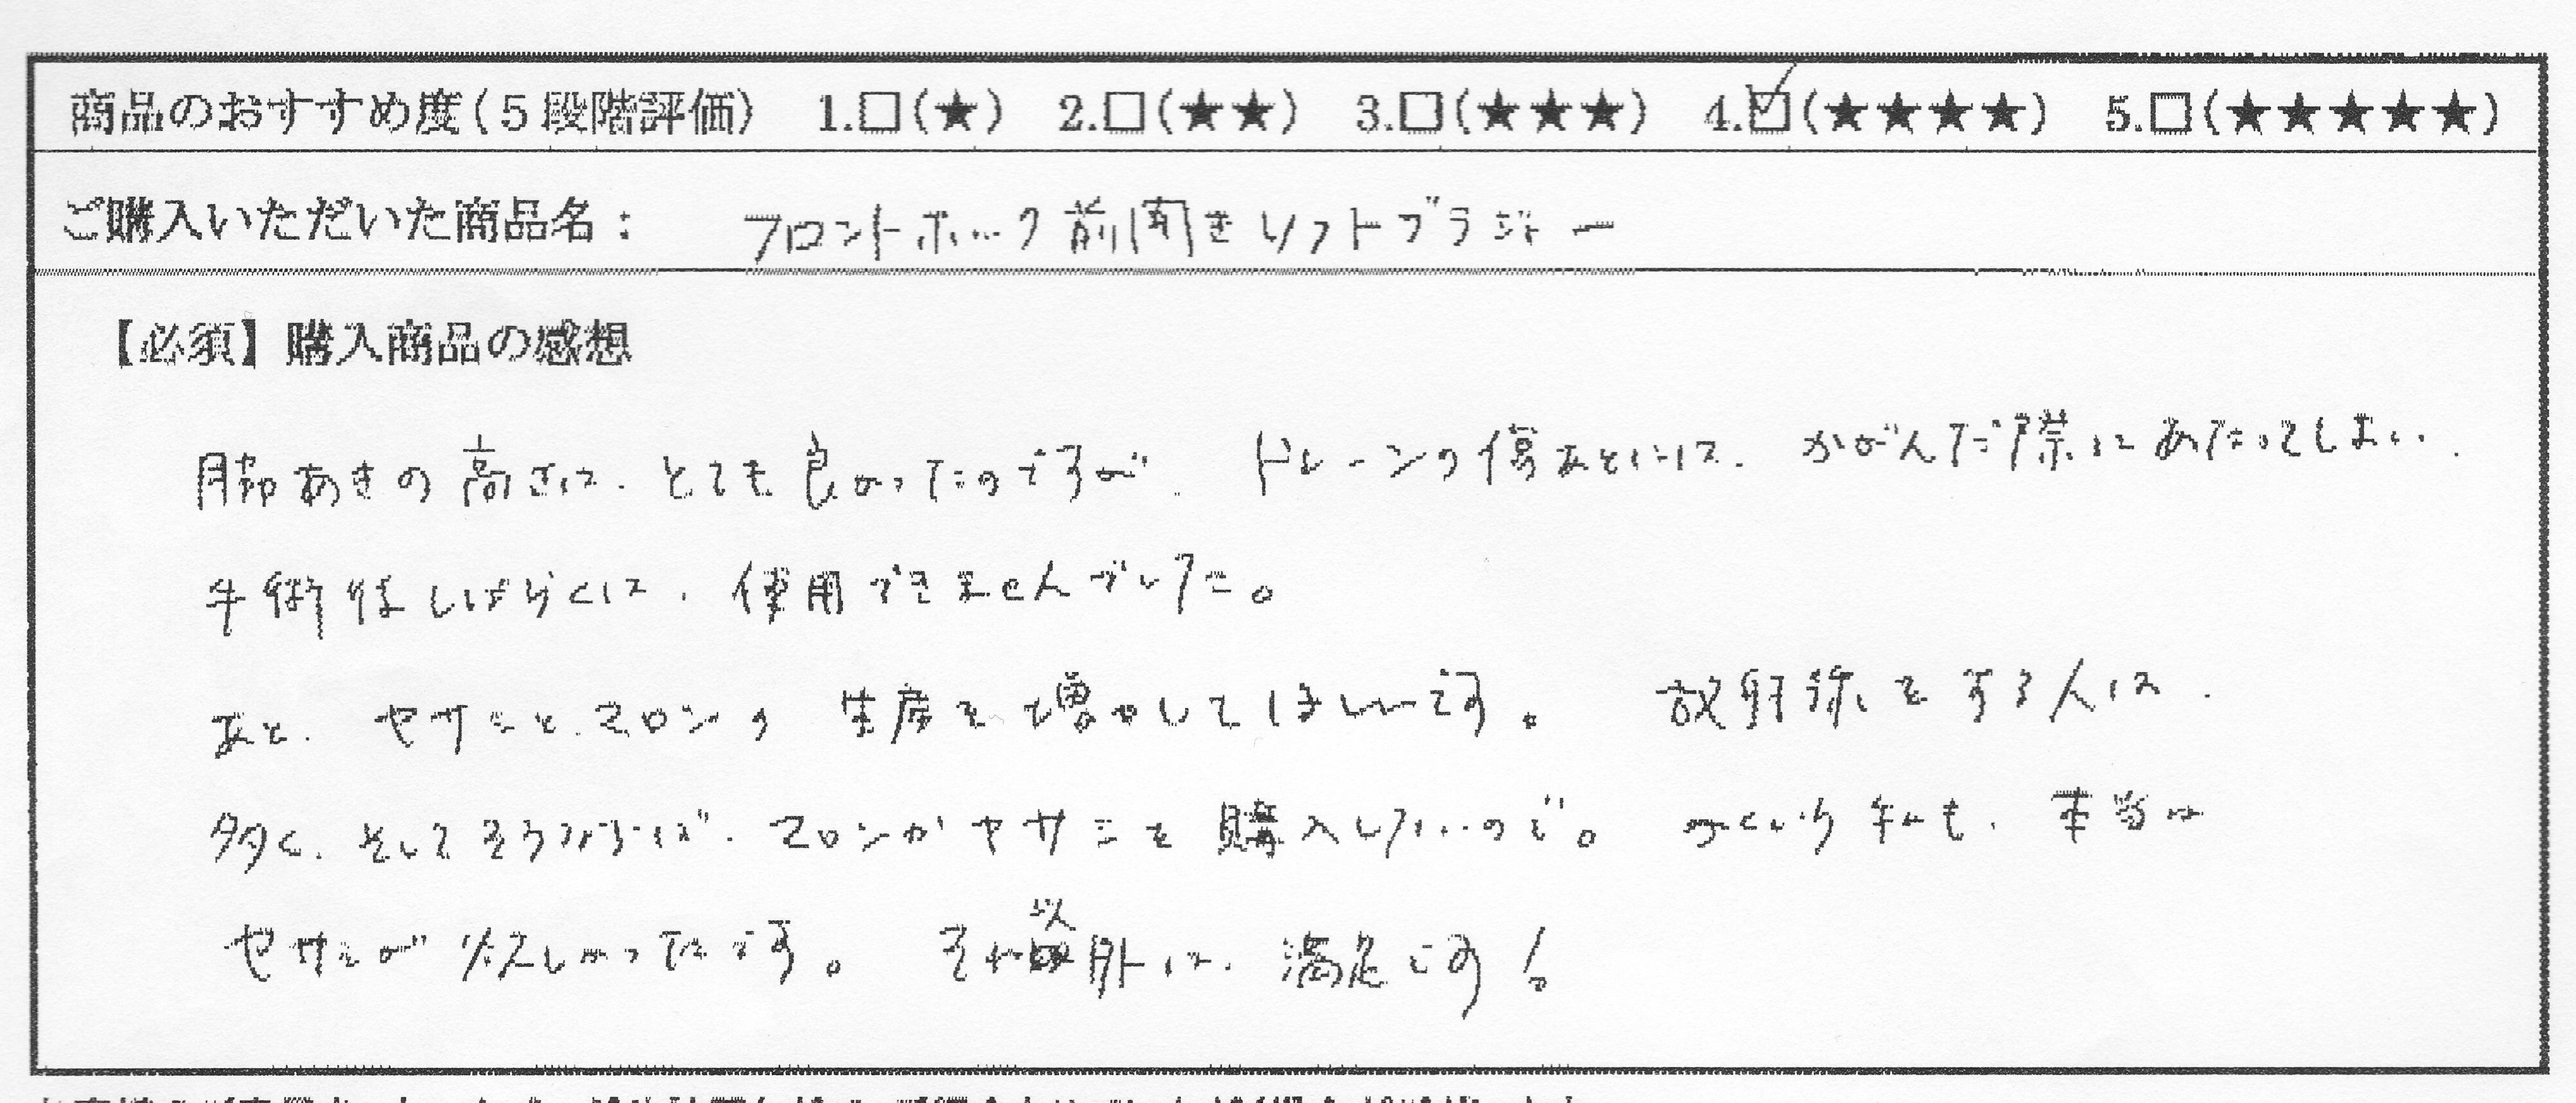 商品のおすすめ度(5段階評価) 1.□(★) 2.□(★★) 3.□(★★★) 4.☑(★★★★) 5.□(★★★★★)
ご購入いただいた商品名: フロントホック前開きソフトブラジャー
【必須】購入商品の感想
脇あきの高さは、とても良かったのですが、ドレーンの傷あとには、かがんだ際にあたってしまい、
手術後しばらくは、使用できませんでした。
あと、ヤサシとマロンの生産を増やしてほしいです。 放射線をする人は、
多く、そしてそうなれば、マロンかヤサシを購入したいので。 というか私も、本当は
ヤサシが欲しかったです。 それ以外は、満足です!